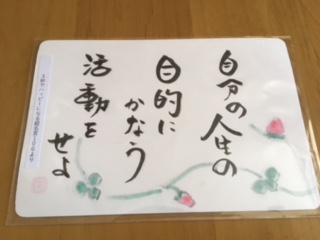 自分の人生の
目的に
かなう
活動を
せよ